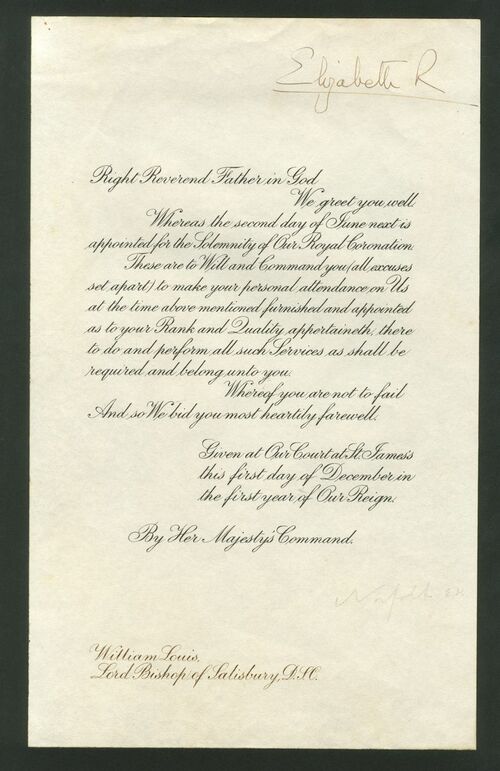 Elizabeth R
Right Reverend Father in God
We greet you well
Whereas the second day of June next is
appointed for the Solemnity of Our Royal Coronation.
These are to Will and Command you (all excuses
set apart) to make your personal attendance on Us
at the time above mentioned furnished and appointed
as to your Rank and Quality appertaineth, there
to do and perform all such Services as shall be
required and belong unto you.
Whereof you are not to fail
And so We bid you most heartily farewell.
Given at Our Court at St. James's
this first day of December in
the first year of Our Reign.
By Her Majesty's Command.
Norfolk EM
William Louis,
Lord Bishop of Salisbury, D.S.O.